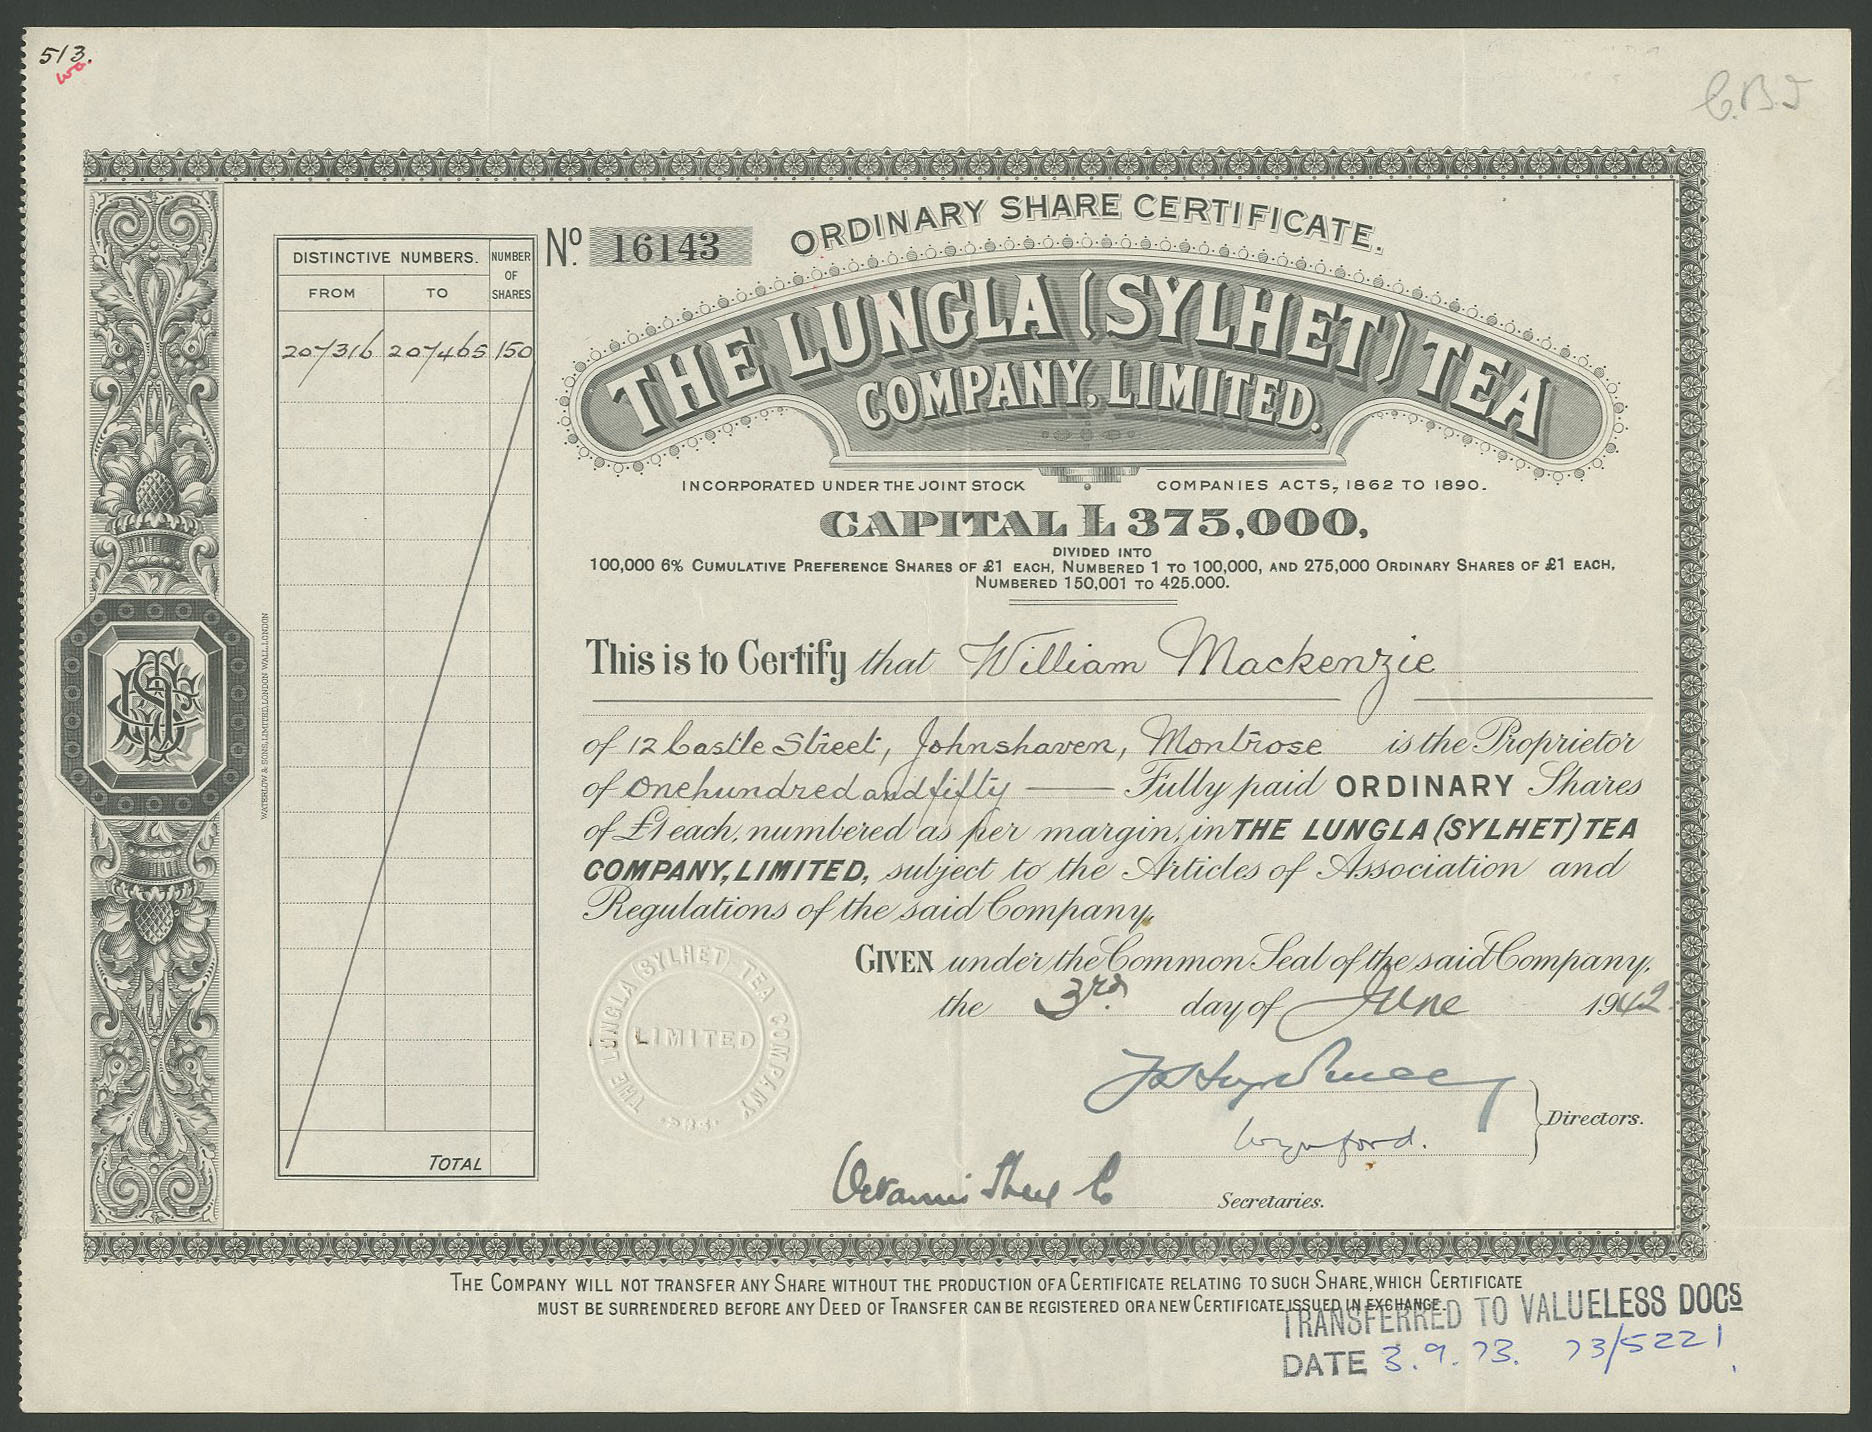 513.
C.B.J
ORDINARY SHARE CERTIFICATE.
No. 16143
DISTINCTIVE NUMBERS. NUMBER OF SHARES
FROM TO
207316 207465 150
THE LUNGLA (SYLHET) TEA
COMPANY, LIMITED.
INCORPORATED UNDER THE JOINT STOCK COMPANIES ACTS, 1862 TO 1890.
CAPITAL £375,000,
DIVIDED INTO
100,000 6% CUMULATIVE PREFERENCE SHARES OF £1 EACH, NUMBERED 1 TO 100,000, AND 275,000 ORDINARY SHARES OF £1 EACH,
NUMBERED 150,001 TO 425.000.
This is to Certify that William Mackenzie
of 12 Castle Street, Johnshaven, Montrose is the Proprietor
of One hundred and fifty Fully paid ORDINARY Shares
of £1 each, numbered as per margin, in THE LUNGLA (SYLHET) TEA
COMPANY, LIMITED, subject to the Articles of Association and
Regulations of the said Company.
GIVEN under the Common Seal of the said Company,
the 3rd day of June 1942
THE LUNGLA (SYLHET) TEA COMPANY
LIMITED
Directors.
Wynford.
Secretaries.
TOTAL
WATERLOW & SONS, LIMITED, LONDON WALL, LONDON
THE COMPANY WILL NOT TRANSFER ANY SHARE WITHOUT THE PRODUCTION OF A CERTIFICATE RELATING TO SUCH SHARE, WHICH CERTIFICATE
MUST BE SURRENDERED BEFORE ANY DEED OF TRANSFER CAN BE REGISTERED OR A NEW CERTIFICATE ISSUED IN EXCHANGE.
TRANSFERRED TO VALUELESS DOCS
DATE 3.9.73. 73/5221